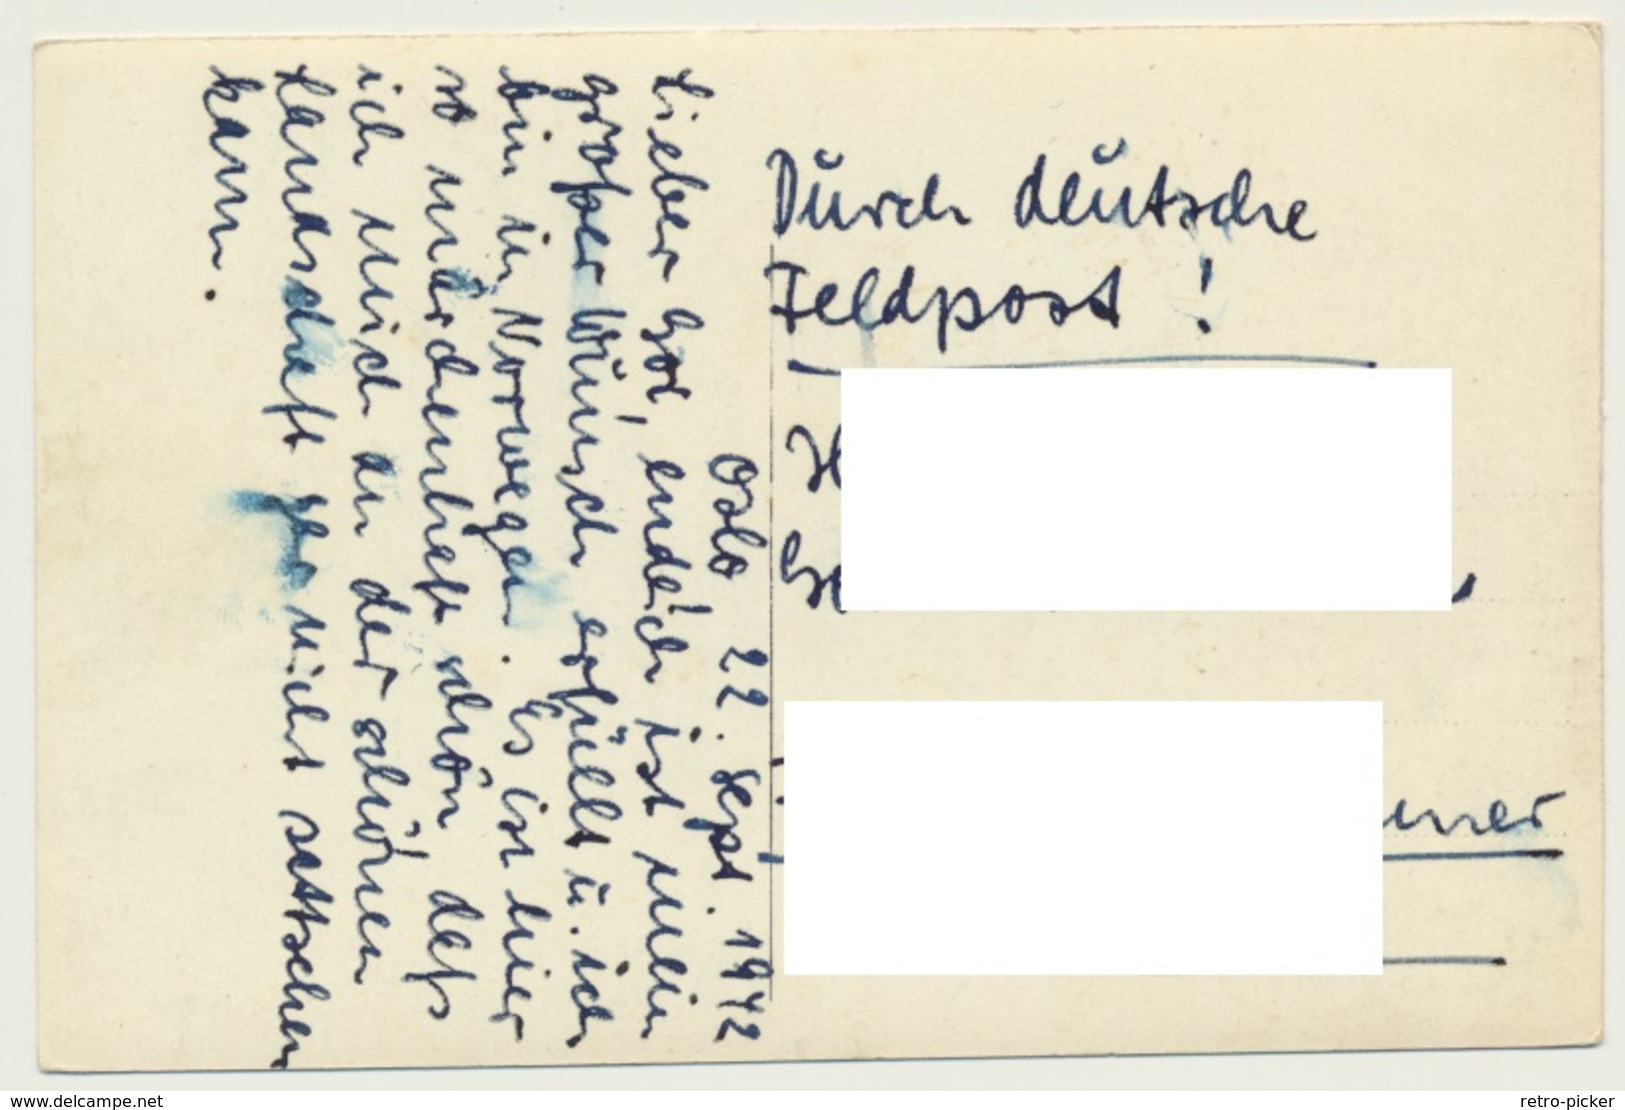 Oslo 22. Sept. 1942
Lieber endlich ist mein
großer Wunsch erfüllt u. ich
bin in Norwegen. Es ist hier
so märchenhaft schön daß
ich mich an der schönen
Landschaft gar nicht sattsehen
kann.
Durch deutsche
Feldpost !
www.delcampe.net
retro-picker